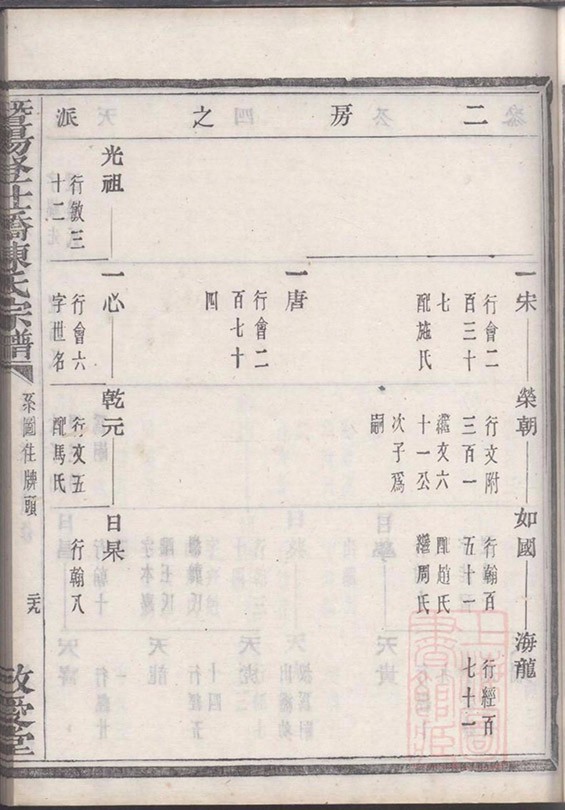 二房之派
一宋
行會二
百三十
七
配施氏
榮朝
行文附
三百一
繼文六
十一公
次子爲
嗣
如國
行翰百
五十一
配趙氏
繼周氏
海龍
行經百
七十一
一唐
行會二
百七十
四
光祖
行敏三
十二
一心
行會六
字世名
乾元
行文五
配馬氏
日杲
行翰八
暨陽
橋陳氏宗譜
系圖住牌頭
敬愛堂